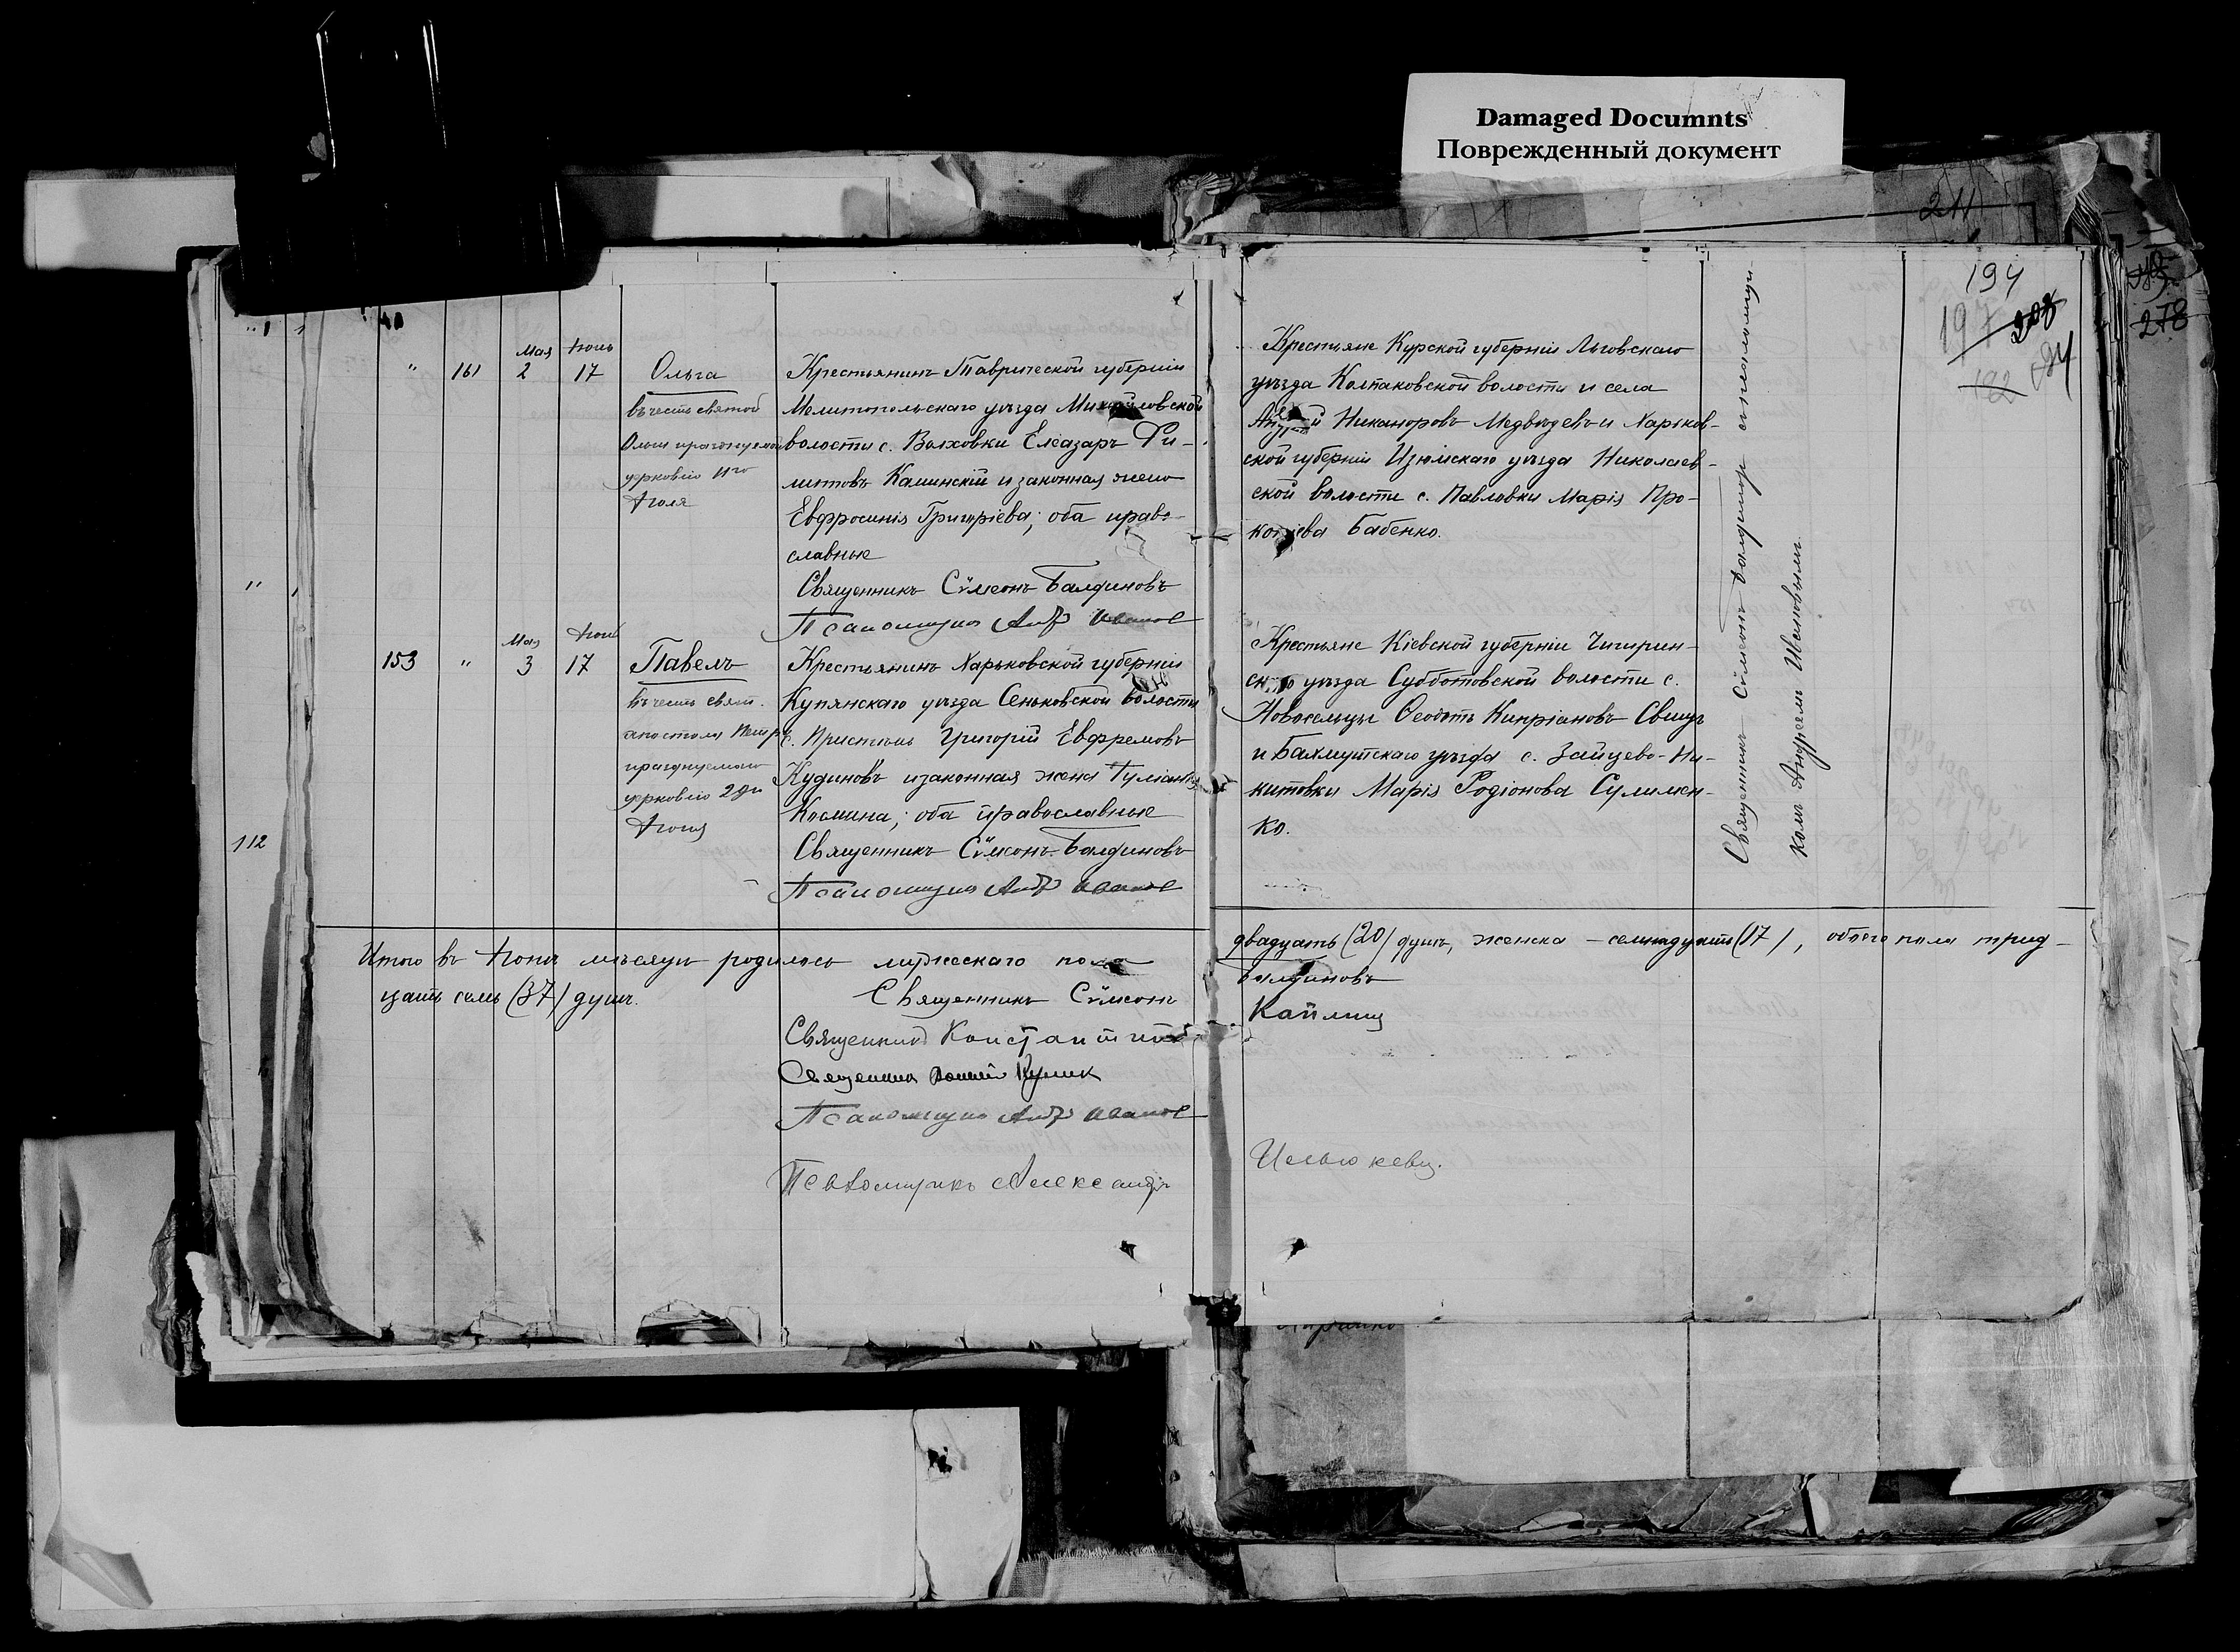 Damaged Documnts
Поврежденный документ
211
194
278
" 161
Мая Іюнь
2 17
Ольга
въ честь святой
Ольги празднуемой
церковію 11го
Іюля
Крестьянинъ Таврической губерніи
Мелитопольскаго уѣзда Михайловской
волости с. Волховки Елеазаръ
Кашинскій и законная жена
Евфросинія Григоріева; оба право-
славные
Священникъ Сѵмеонъ Балдиновъ
Псаломщикъ Андр Иванов
Крестьяне Курской губерніи Льговскаго
уѣзда Колпаковской волости и села
Никаноровъ Медвѣдевъ и Харьков-
ской губерніи Изюмскаго уѣзда Николаев-
ской волости с. Павловки Марія Про-
копіева Бабенко.
153 "
Мая Іюнь
3 17
Павелъ
въ честь свят.
апостола
празднуемаго
церковію 29го
Іюня
Крестьянинъ Харьковской губерніи
Купянскаго уѣзда Сеньковской волости
с. Пристѣнъ Григорій Евфремовъ
Кудиновъ и законная жена Іуліанія
Космина; оба православные
Священникъ Сѵмеонъ Балдиновъ
Псаломщикъ Андр Иванов
Крестьяне Кіевской губерніи Чигирин-
скаго уѣзда Субботовской волости с.
Новосельцы Ѳеодотъ Кипріановъ
и Бахмутскаго уѣзда с. Зайцево-Ни-
китовки Марія Родіонова Сулимен-
ко.
Священникъ Сѵмеонъ Балдинов съ псаломщи-
комъ Андреемъ Ивановымъ
112
Итого въ Іюнѣ мѣсяцѣ родилось мужескаго пола двадцать (20) душъ, женска - семнадцать (17), обоего пола трид-
цать семь (37) душъ.
Священникъ Сѵмеонъ Балдиновъ
Священник Константин
Священник Кулик
Псаломщикъ Андр Иванов
Псаломщикъ Александръ